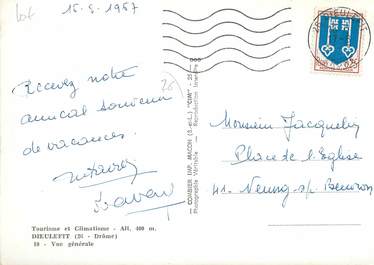 lot
15-9-1967
26 DIEULEFIT
Recevez notre
amical souvenir
de vacances.
26
COMBIER IMP. MACON (S.-et-L.) "CIM"
Photographie Véritable - Reproduction interdite
Monsieur Jacquelin
Place de l'Eglise
41- Neung-s/- Beuvron
Tourisme et Climatisme - Alt. 400 m.
DIEULEFIT (26 - Drôme)
10 - Vue générale